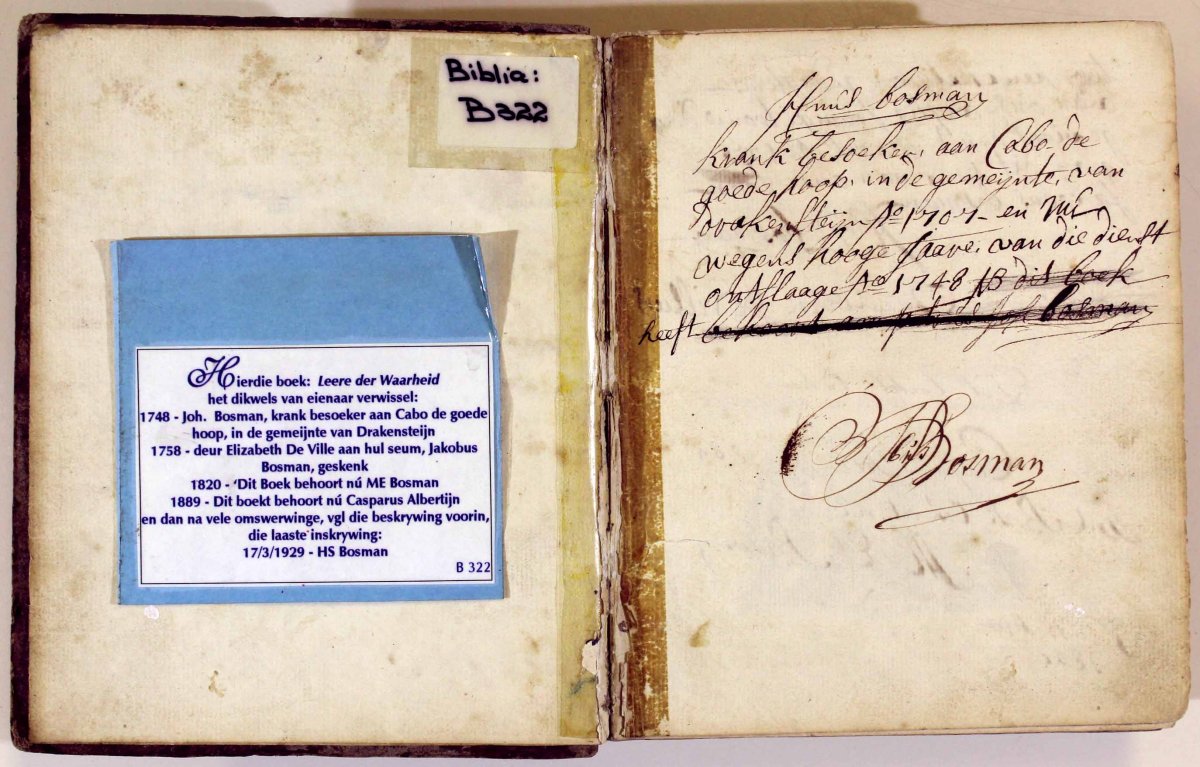 Biblia:
B322
Hierdie boek: Leere der Waarheid
het dikwels van eienaar verwissel:
1748 - Joh. Bosman, krank besoeker aan Cabo de goede
hoop, in de gemeijnte van Drakensteijn
1758 - deur Elizabeth De Ville aan hul seum, Jakobus
Bosman, geskenk
1820 - 'Dit Boek behoort nú ME Bosman
1889 - Dit boekt behoort nú Casparus Albertijn
en dan na vele omswerwinge, vgl die beskrywing voorin,
die laaste inskrywing:
17/3/1929 - HS Bosman
B 322
bosman
krank besoeker, aan Cabo de
goede hoop, in de gemeijnte, van
Drakensteijn Ao 1707 en
wegens hooge Jaare, van die dienst
ontslaage Ao 1748 dit boek
heeft behoort aan bosman
Bosman